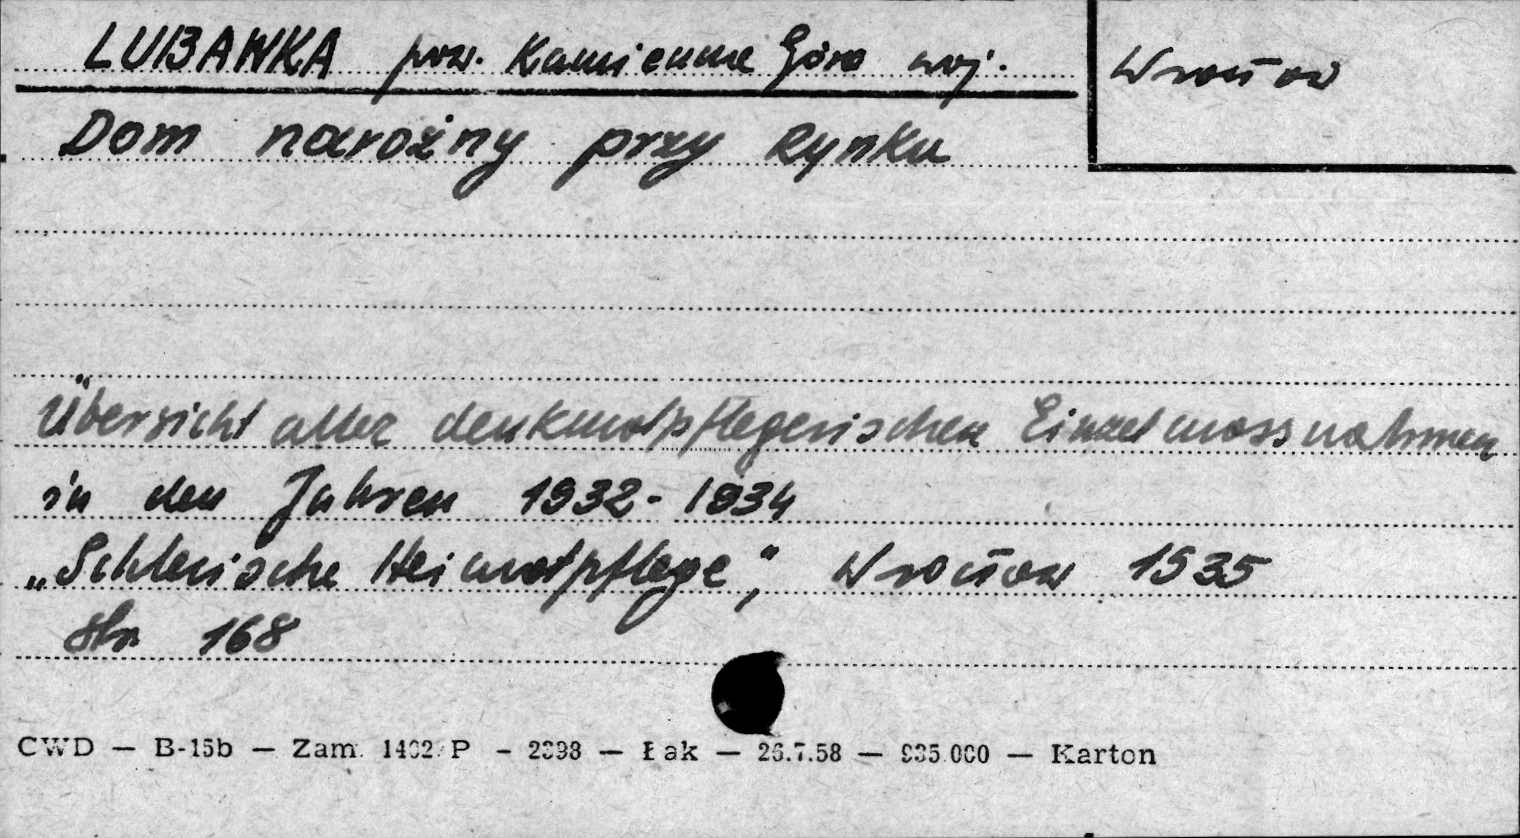 LUBAWKA pow. Kamienna Góra woj. Wrocław
Dom narożny przy Rynku
Übersicht aller denkmalpflegerischen Einzelmassnahmen
in den Jahren 1932-1934
„Schlesische Heimatpflege”, Wrocław 1935
str 168
CWD — B-15b — Zam. 1402/P - 2398 — Łak — 26.7.58 — 935.000 — Karton